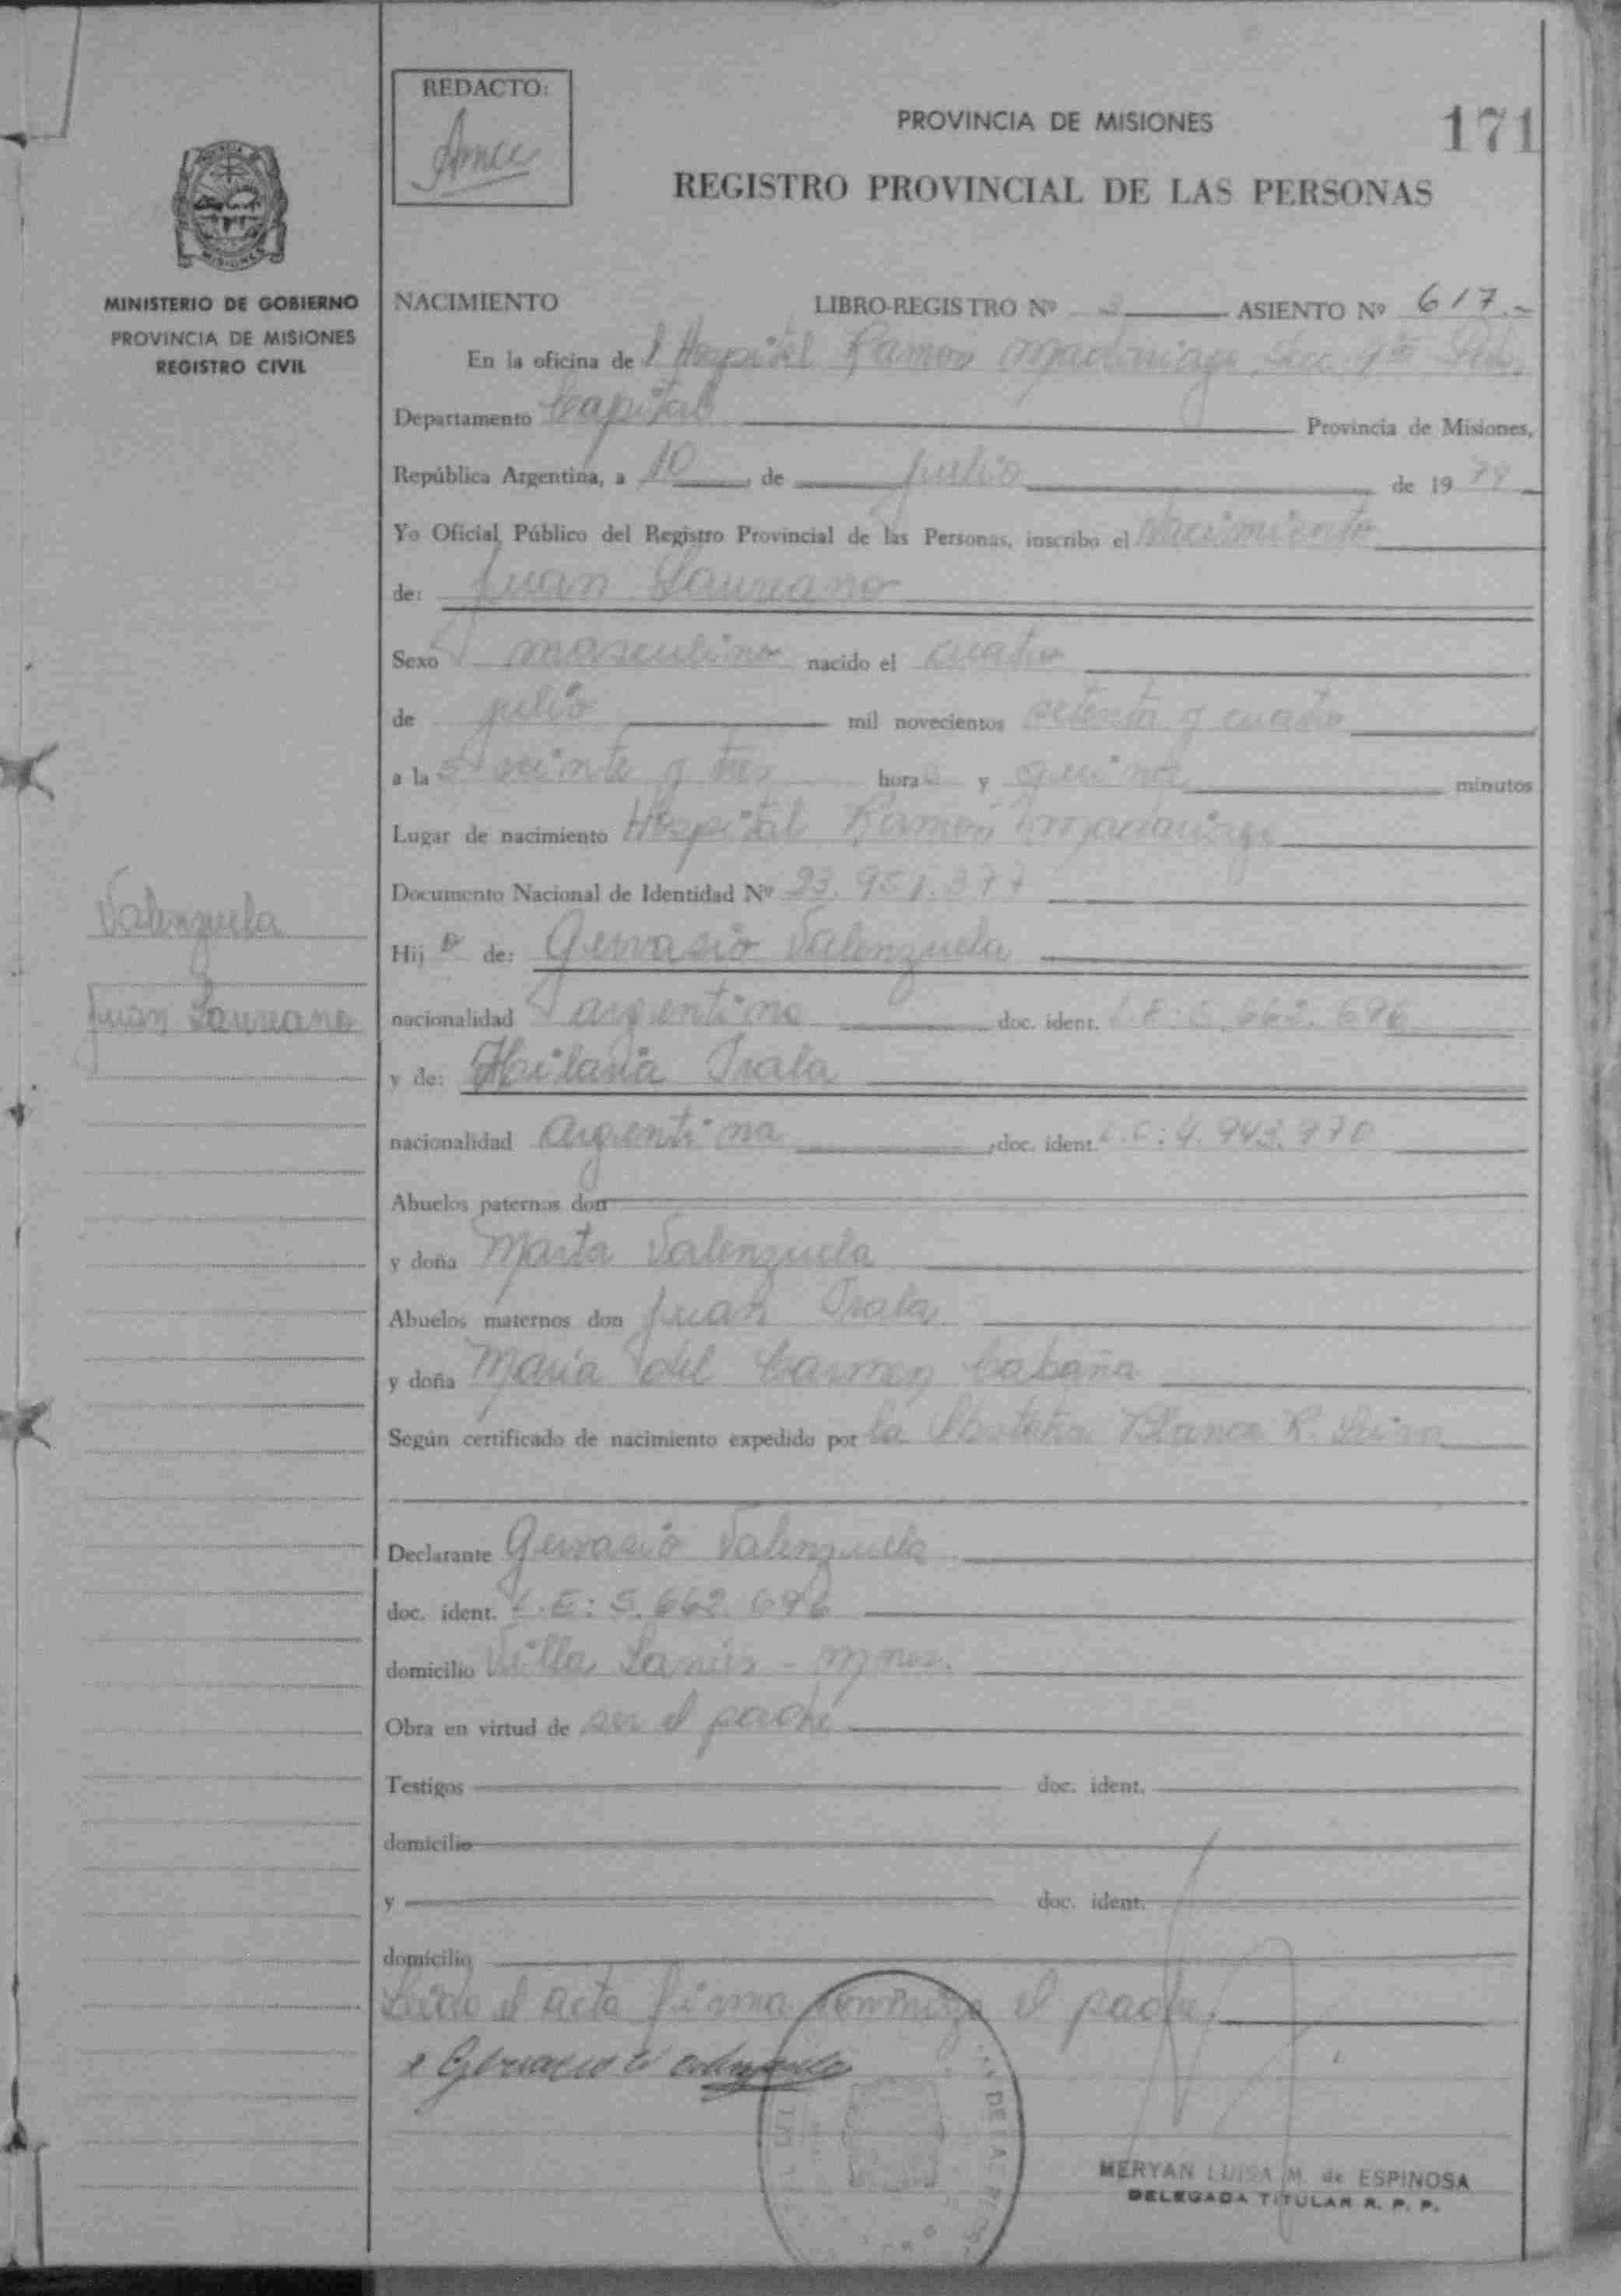 REDACTO:
PROVINCIA DE MISIONES
171
REGISTRO PROVINCIAL DE LAS PERSONAS
MINISTERIO DE GOBIERNO
PROVINCIA DE MISIONES
REGISTRO CIVIL
NACIMIENTO LIBRO-REGISTRO Nº ASIENTO Nº 617.-
En la oficina de l Hospital Ramon Madariaga Secc. 1ra
Departamento Capital Provincia de Misiones,
República Argentina, a 10 de julio de 19
Yo Oficial Público del Registro Provincial de las Personas, inscribo el Nacimiento
de: Juan Laureano
Sexo masculino nacido el cuatro
de julio mil novecientos setenta y cuatro
a la s veinte y tres hora s y quince minutos
Lugar de nacimiento Hospital Ramón Madariaga
Documento Nacional de Identidad Nº 23.951.377
Valenzuela
Juan Laureano
Hij o de: Gervasio Valenzuela
nacionalidad argentino doc. ident. L.E: 5.662.696
y de: Hilaria Irala
nacionalidad argentina doc. ident. L.C: 4.943.970
Abuelos paternos don
y doña Marta Valenzuela
Abuelos maternos don Juan Irala
y doña María del Carmen Cabaña
Según certificado de nacimiento expedido por la Obstetra Blanca R.
Declarante Gervasio Valenzuela
doc. ident. L.E: 5.662.696
domicilio Villa Lanús - Mnes.
Obra en virtud de ser el padre
Testigos doc. ident.
domicilio
y doc. ident.
domicilio
Leído el acta firma conmigo el padre.
MERYAN LUISA M. de ESPINOSA
DELEGADA TITULAR R. P. P.